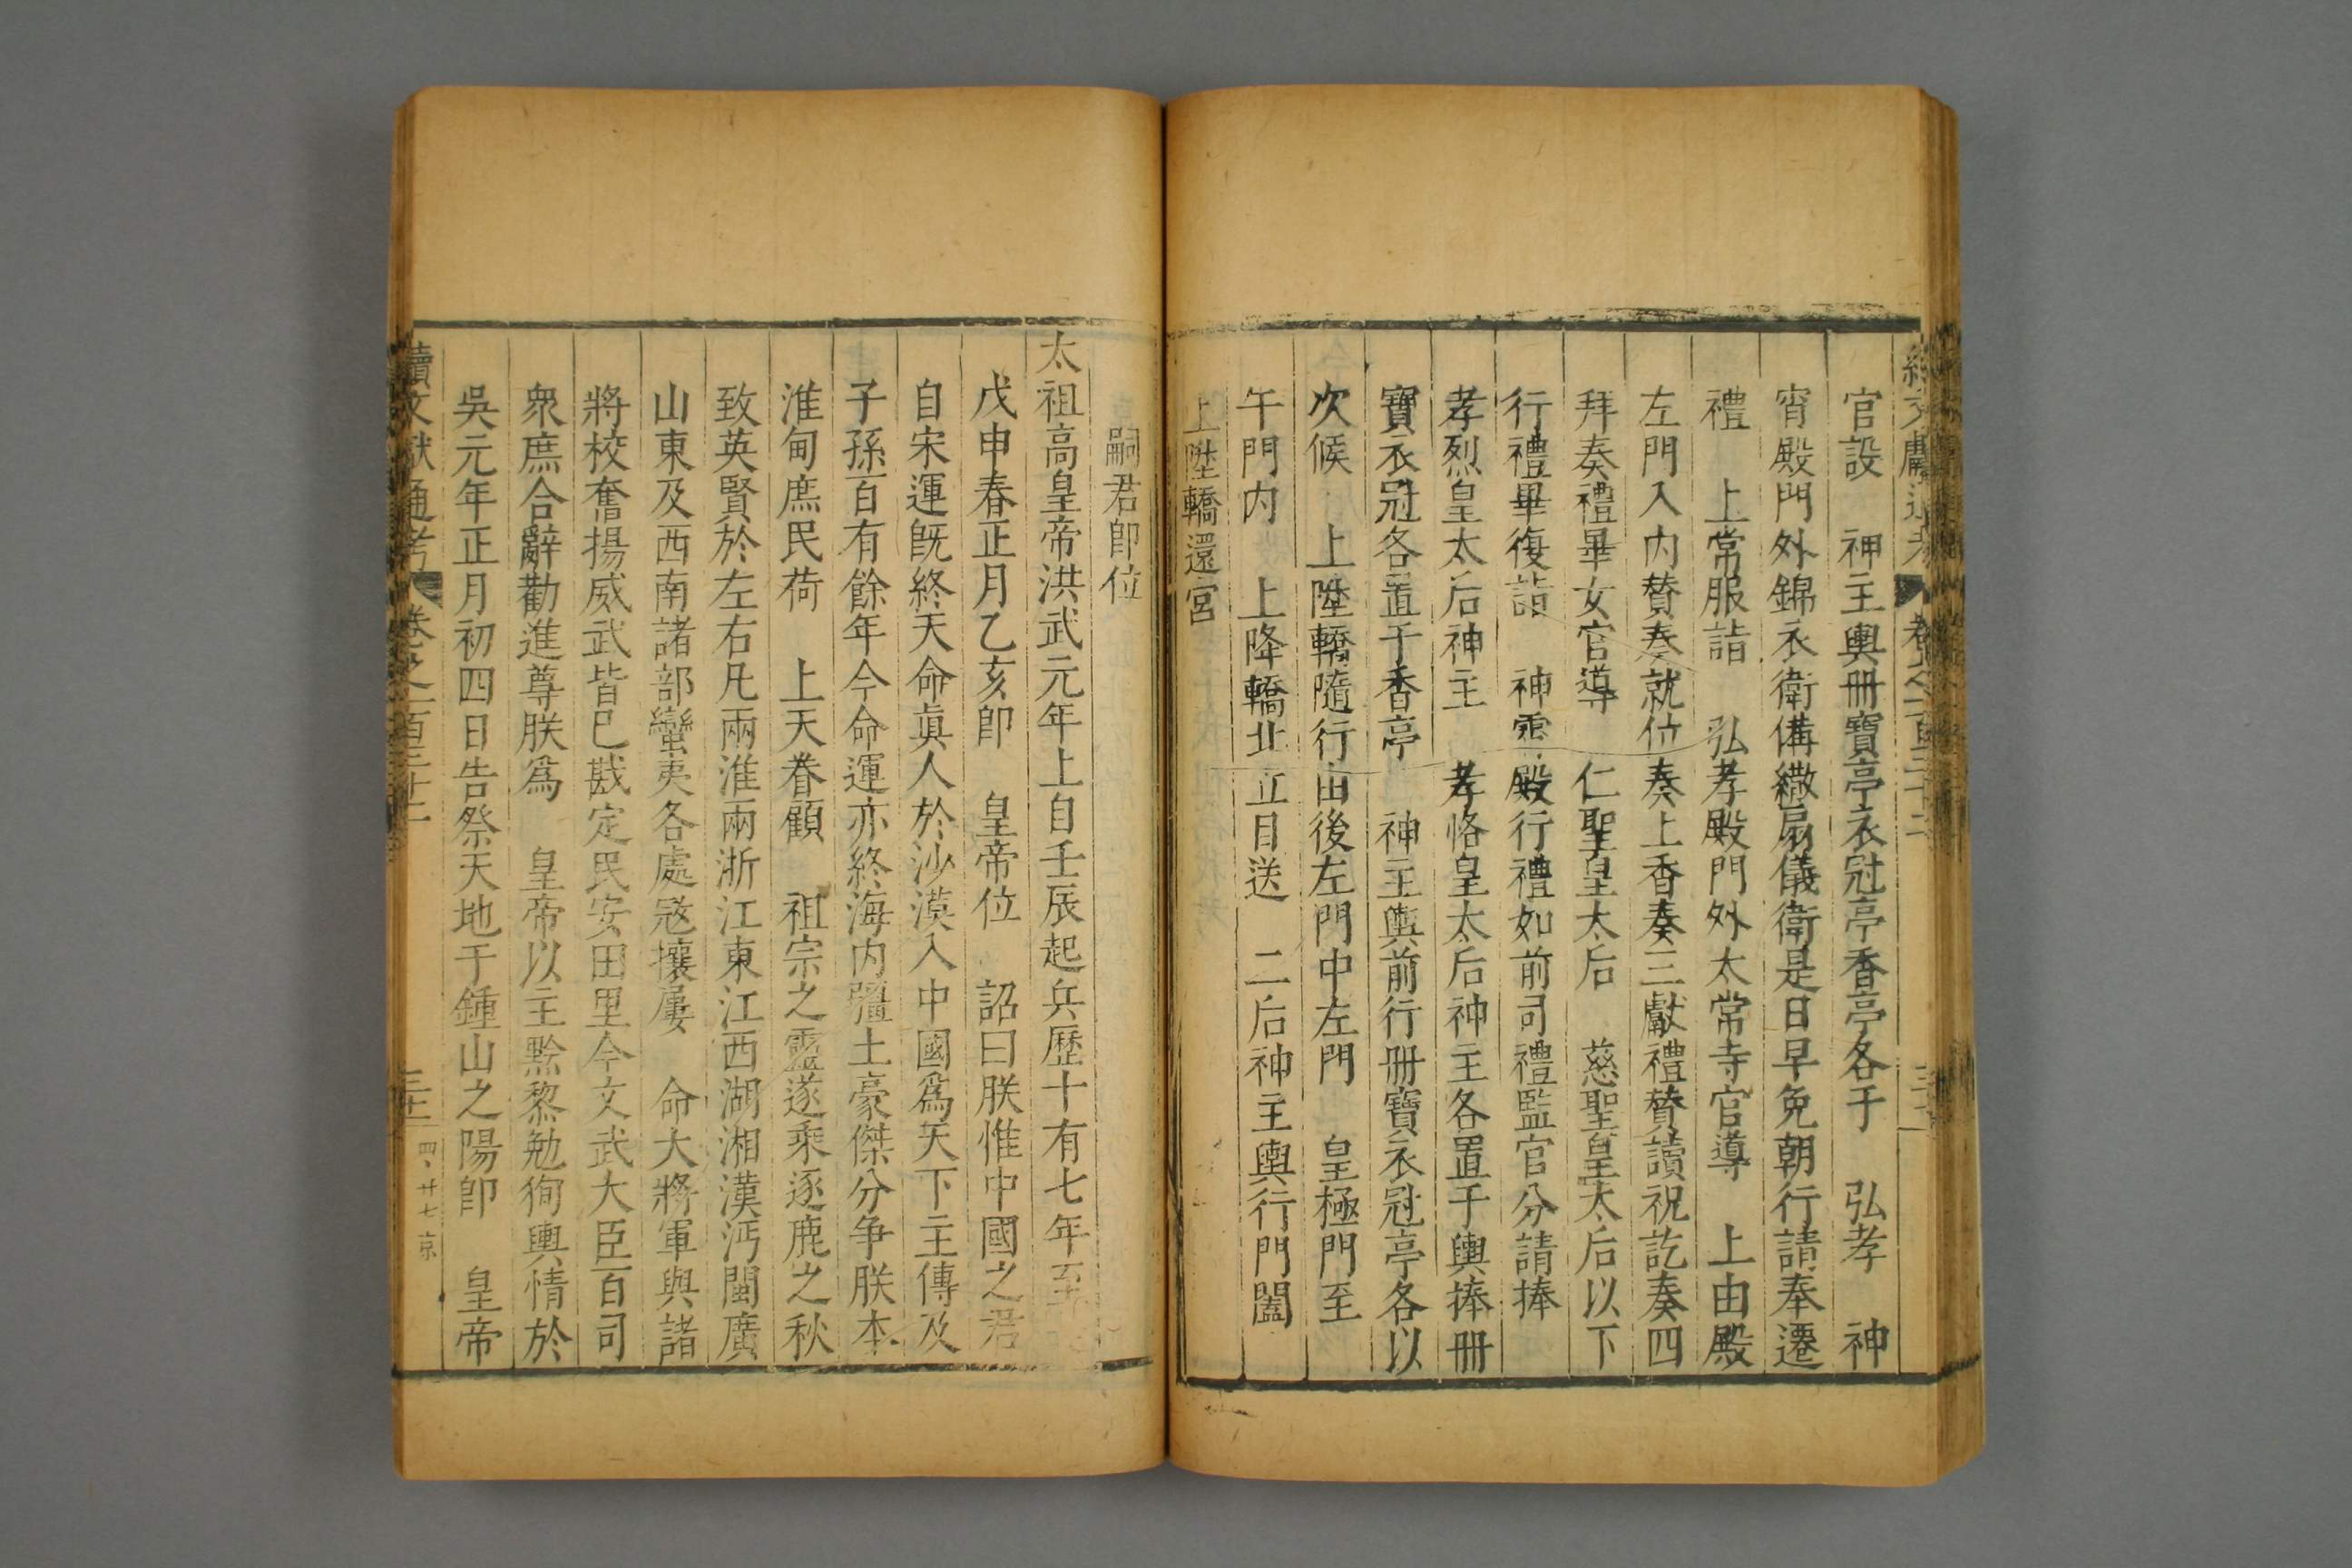 官設 神主輿冊寶亭衣冠亭香亭各于 弘孝 神
宵殿門外錦衣衛備繖扇儀衛是日早免朝行請奉遷
禮 上常服詣 弘孝殿門外太常寺官導 上由殿
左門入内贊奏就位奏上香奏三獻禮贊讀祝訖奏四
拜奏禮畢女官導 仁聖皇太后 慈聖皇太后以下
行禮畢復詣 神霄殿行禮如前司禮監官分請捧
孝烈皇太后神主 孝恪皇太后神主各置于輿捧冊
寶衣冠各置于香亭 神主輿前行冊寶衣冠亭各以
次候 上陞轎隨行由後左門中左門 皇極門至
午門内 上降轎北立目送 二后神主輿行門闔
上陞轎還宮
嗣君卽位
太祖高皇帝洪武元年上自壬辰起兵歷十有七年至
戊申春正月乙亥卽 皇帝位 詔曰朕惟中國之君
自宋運旣終天命眞人於沙漠入中國爲天下主傳及
子孫百有餘年今命運亦終海内疆土豪傑分争朕本
淮甸庶民荷 上天眷顧 祖宗之靈遂乘逐鹿之秋
致英賢於左右凡兩淮兩浙江東江西湖湘漢沔閩廣
山東及西南諸部蠻夷各處寇攘屢 命大將軍與諸
將校奮揚威武皆已戡定民安田里今文武大臣百司
衆庶合辭勸進尊朕爲 皇帝以主黔黎勉徇輿情於
吳元年正月初四日告祭天地于鍾山之陽卽 皇帝
續文獻通考 卷之一百三十二 三十二 四、廿七 京